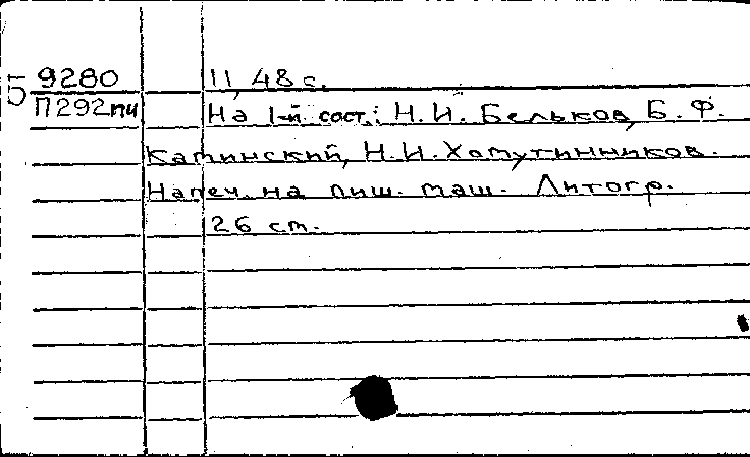 Б 9280 II, 48 с.
П292пи На 1-й сост.: Н. И. Бельков, Б. Ф.
Каминский, Н. И. Хомутинников.
Напеч. на пиш. маш. Литогр.
26 см.